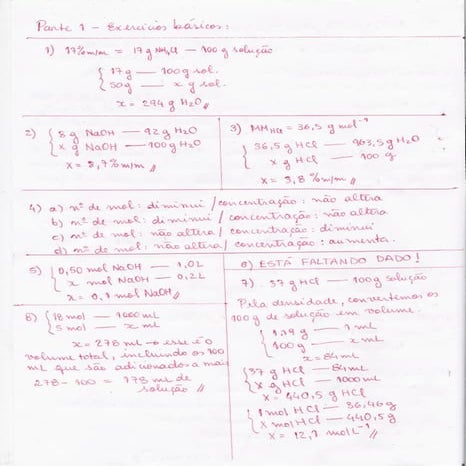 Parte 1 - Exercícios básicos:
1) 17% m/m = 17 g NH4Cl — 100 g solução
17 g — 100 g sol.
50 g — x g sol.
x = 294 g H2O
2) 8 g NaOH — 92 g H2O
x g NaOH — 100 g H2O
x = 8,7% m/m
3) MM HCl = 36,5 g mol⁻¹
36,5 g HCl — 963,5 g H2O
x g HCl — 100 g
x = 3,8 % m/m
4) a) nº de mol: diminui / concentração: não altera
b) nº de mol: diminui / concentração: não altera
c) nº de mol: não altera / concentração: diminui
d) nº de mol: não altera / concentração: aumenta.
5) 0,50 mol NaOH — 1,0 L
x mol NaOH — 0,2 L
x = 0,1 mol NaOH
6) ESTÁ FALTANDO DADO!
7) 37 g HCl — 100 g solução
Pela densidade, convertemos os
100 g de solução em volume.
1,19 g — 1 mL
100 g — x mL
x = 84 mL
37 g HCl — 84 mL
x g HCl — 1000 mL
x = 440,5 g HCl
1 mol HCl — 36,46 g
x mol HCl — 440,5 g
x = 12,1 mol L⁻¹
8) 18 mol — 1000 mL
5 mol — x mL
x = 278 mL → esse é o
volume total, incluindo os 100
mL que são adicionados a mais
278 - 100 = 178 mL de
solução